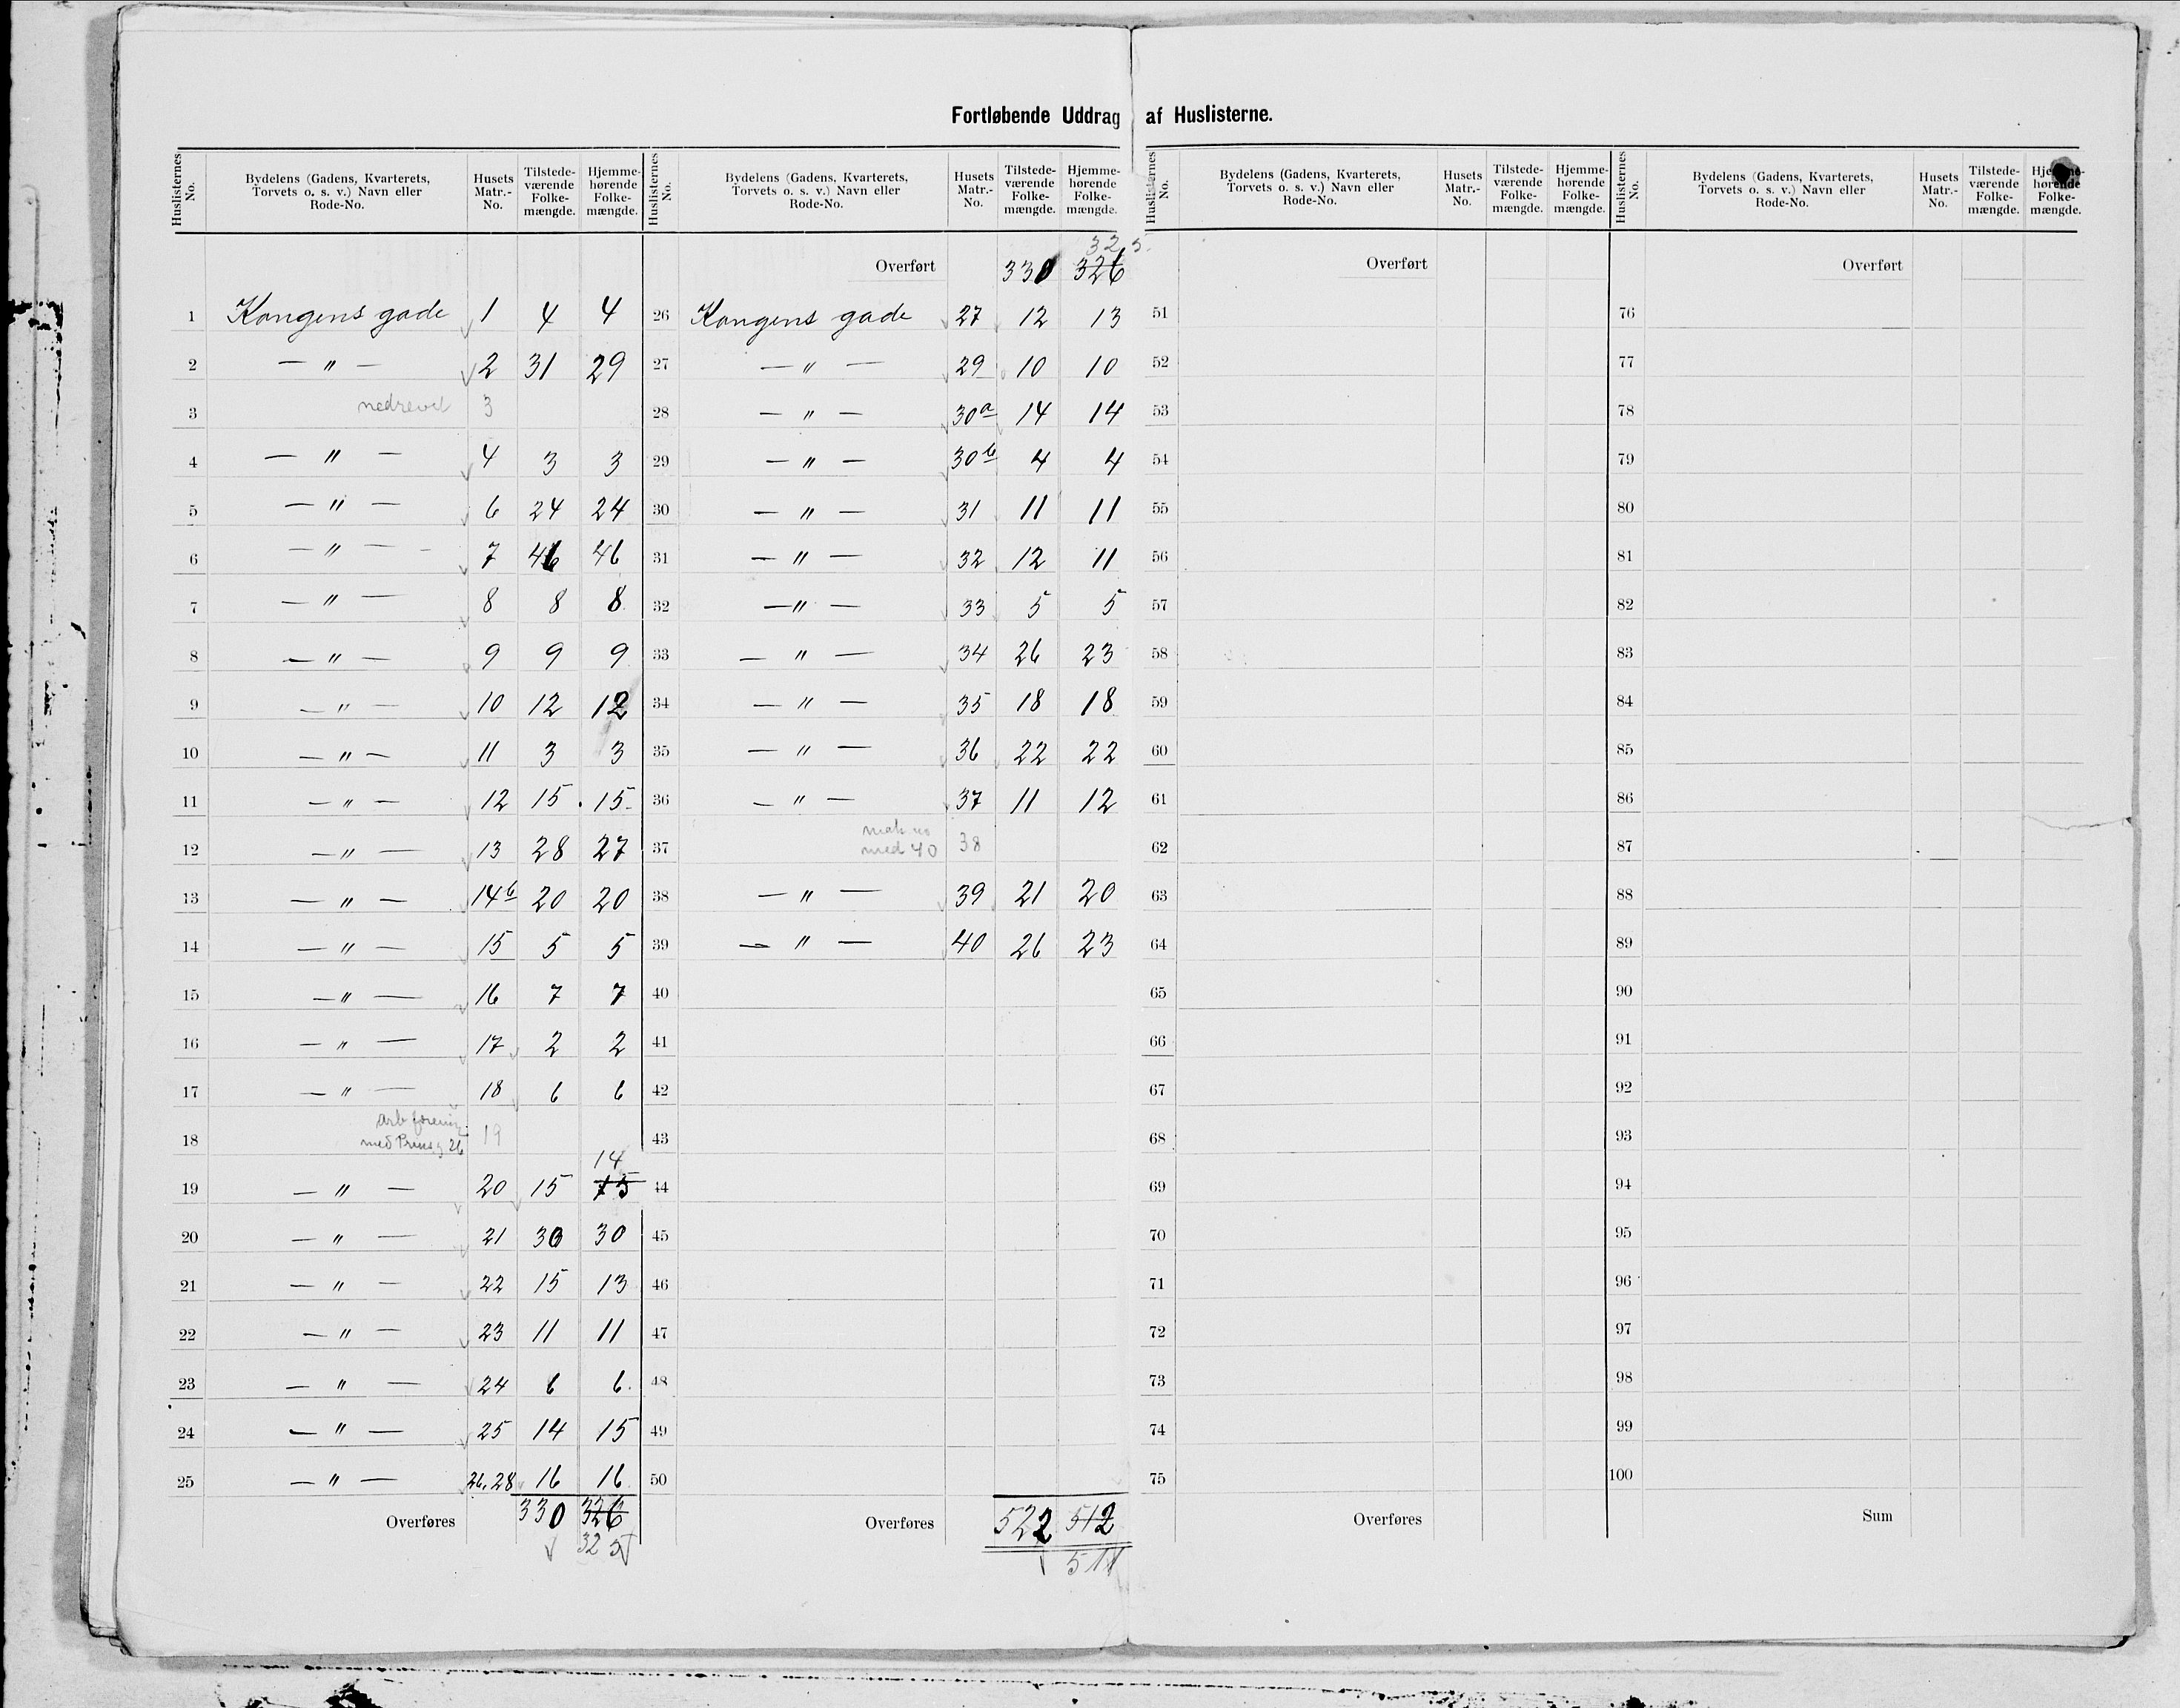 Fortløbende Uddrag af Huslisterne.
Huslisternes No. | Bydelens (Gadens, Kvarterets, Torvets o. s. v.) Navn eller Rode-No. | Husets Matr.-No. | Tilstedeværende Folkemængde. | Hjemmehørende Folkemængde.
1 Kongens gade 1 4 4
2 — " — 2 31 29
3 nedrevet 3
4 — " — 4 3 3
5 — " — 6 24 24
6 — " — 7 46 46
7 — " — 8 8 8
8 — " — 9 9 9
9 — " — 10 12 12
10 — " — 11 3 3
11 — " — 12 15 15
12 — " — 13 28 27
13 — " — 14b 20 20
14 — " — 15 5 5
15 — " — 16 7 7
16 — " — 17 2 2
17 — " — 18 6 6
18 arb forening
med Prinsg 26 19
14
19 — " — 20 15 15
20 — " — 21 30 30
21 — " — 22 15 13
22 — " — 23 11 11
23 — " — 24 6 6
24 — " — 25 14 15
25 — " — 26.28 16 16
Overføres 330 326
325
Huslisternes No. | Bydelens (Gadens, Kvarterets, Torvets o. s. v.) Navn eller Rode-No. | Husets Matr.-No. | Tilstedeværende Folkemængde. | Hjemmehørende Folkemængde.
325
Overført 330 326
26 Kongens gade 27 12 13
27 — " — 29 10 10
28 — " — 30a 14 14
29 — " — 30b 4 4
30 — " — 31 11 11
31 — " — 32 12 11
32 — " — 33 5 5
33 — " — 34 26 23
34 — " — 35 18 18
35 — " — 36 22 22
36 — " — 37 11 12
37 mat. no
med 40 38
38 — " — 39 21 20
39 — " — 40 26 23
40
41
42
43
44
45
46
47
48
49
50
Overføres 522 512
511
Huslisternes No. | Bydelens (Gadens, Kvarterets, Torvets o. s. v.) Navn eller Rode-No. | Husets Matr.-No. | Tilstedeværende Folkemængde. | Hjemmehørende Folkemængde.
Overført
51
52
53
54
55
56
57
58
59
60
61
62
63
64
65
66
67
68
69
70
71
72
73
74
75
Overføres
Huslisternes No. | Bydelens (Gadens, Kvarterets, Torvets o. s. v.) Navn eller Rode-No. | Husets Matr.-No. | Tilstedeværende Folkemængde. | Hjemmehørende Folkemængde.
Overført
76
77
78
79
80
81
82
83
84
85
86
87
88
89
90
91
92
93
94
95
96
97
98
99
100
Sum